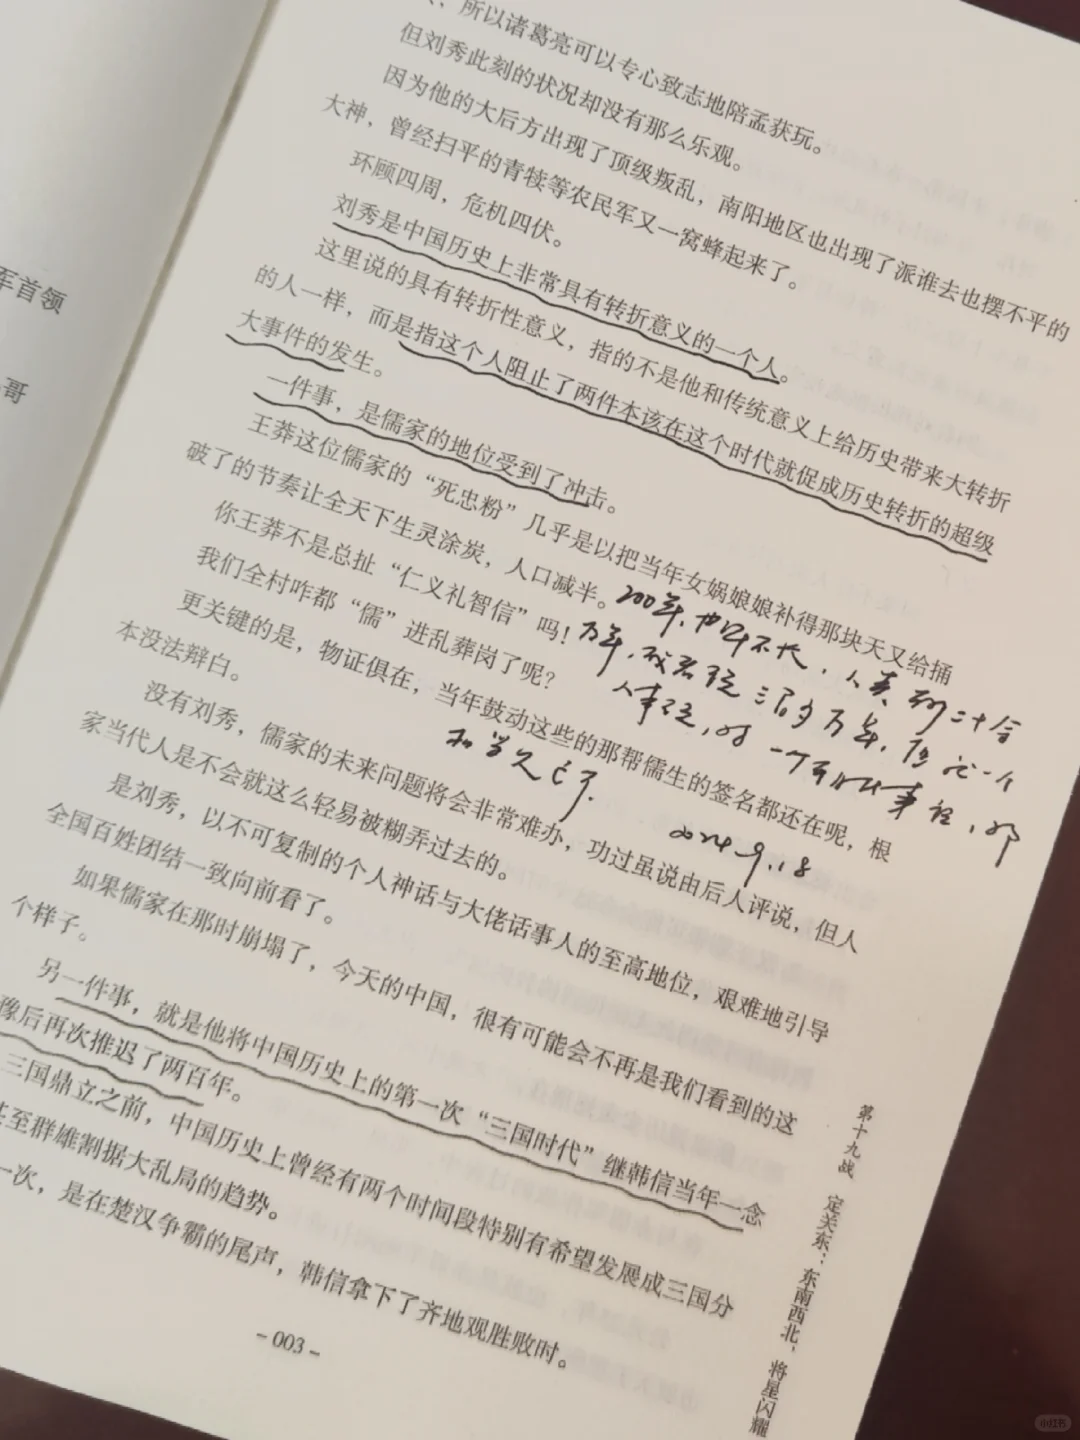 军首领
哥
所以诸葛亮可以专心致志地陪孟获玩。
但刘秀此刻的状况却没有那么乐观。
因为他的大后方出现了顶级叛乱，南阳地区也出现了派谁去也摆不平的
大神，曾经扫平的青犊等农民军又一窝蜂起来了。
环顾四周，危机四伏。
刘秀是中国历史上非常具有转折意义的一个人。
这里说的具有转折性意义，指的不是他和传统意义上给历史带来大转折
的人一样，而是指这个人阻止了两件本该在这个时代就促成历史转折的超级
大事件的发生。
一件事，是儒家的地位受到了冲击。
王莽这位儒家的“死忠粉”几乎是以把当年女娲娘娘补得那块天又给捅
破了的节奏让全天下生灵涂炭，人口减半。
你王莽不是总扯“仁义礼智信”吗！
我们全村咋都“儒”进乱葬岗了呢？
更关键的是，物证俱在，当年鼓动这些的那帮儒生的签名都还在呢，根
本没法辩白。
200年，
人类
万年，
万年，
一个
2024.9.18
没有刘秀，儒家的未来问题将会非常难办，功过虽说由后人评说，但人
家当代人是不会就这么轻易被糊弄过去的。
是刘秀，以不可复制的个人神话与大佬话事人的至高地位，艰难地引导
全国百姓团结一致向前看了。
如果儒家在那时崩塌了，今天的中国，很有可能会不再是我们看到的这
个样子。
另一件事，就是他将中国历史上的第一次“三国时代”继韩信当年一念
豫后再次推迟了两百年。
三国鼎立之前，中国历史上曾经有两个时间段特别有希望发展成三国分
甚至群雄割据大乱局的趋势。
一次，是在楚汉争霸的尾声，韩信拿下了齐地观胜败时。
-003-
第十九战 定关东：东南西北，将星闪耀